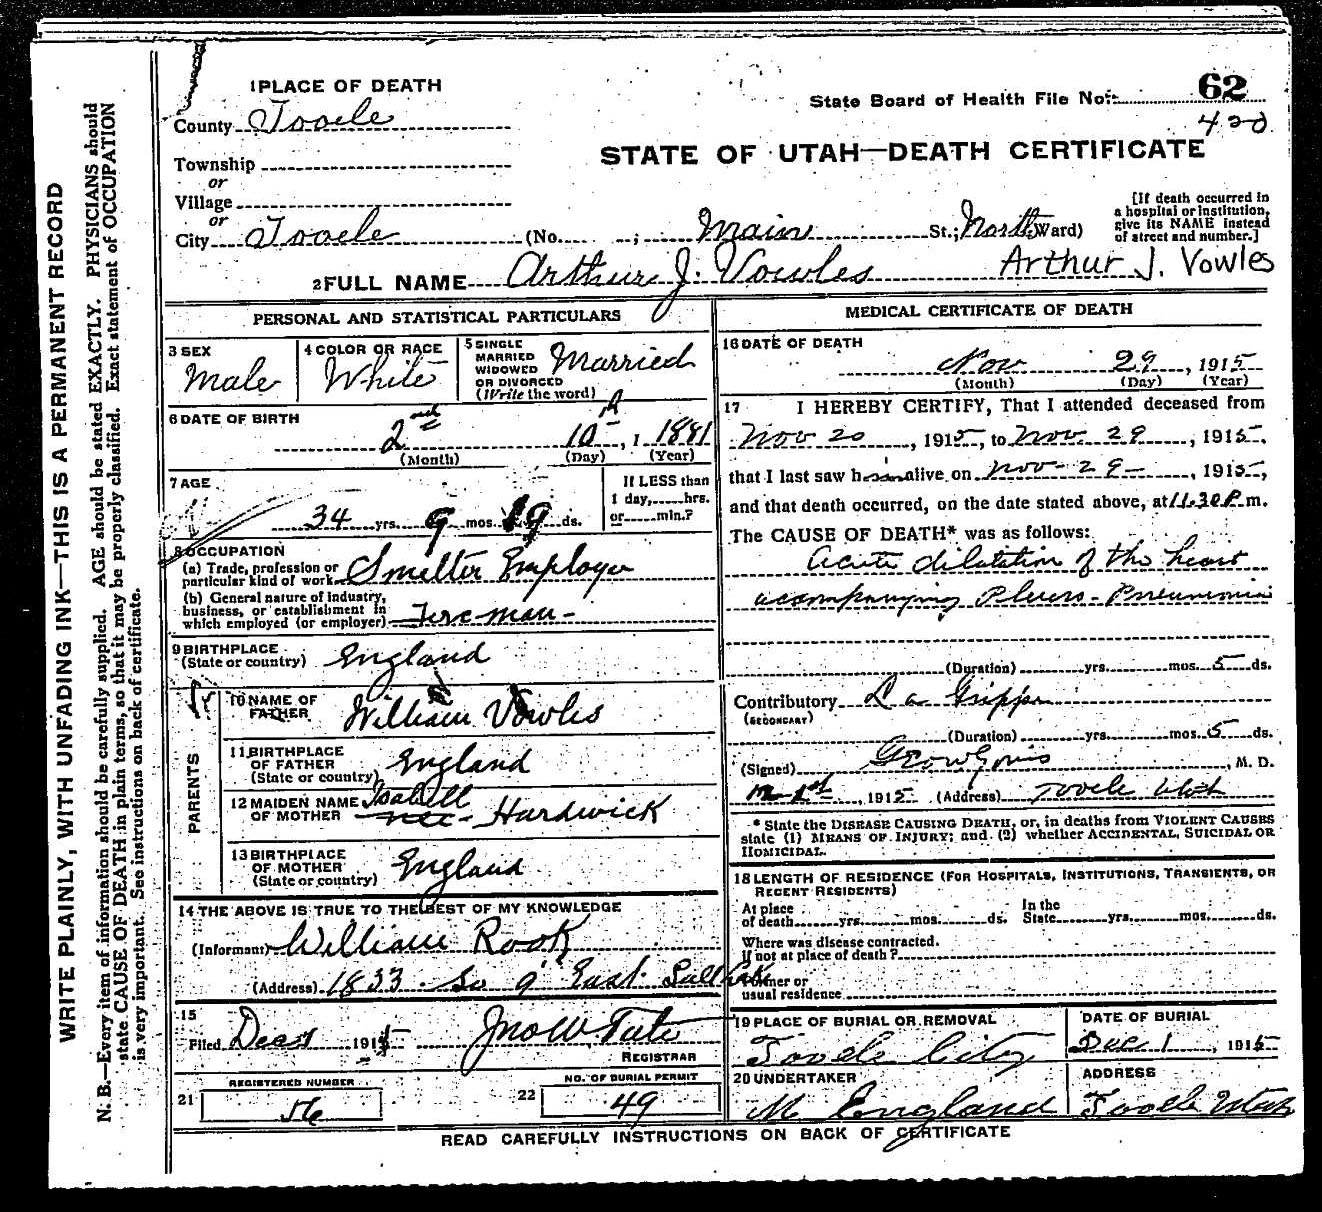 WRITE PLAINLY, WITH UNFADING INK—THIS IS A PERMANENT RECORD
N. B.—Every item of information should be carefully supplied. AGE should be stated EXACTLY. PHYSICIANS should
state CAUSE OF DEATH in plain terms, so that it may be properly classified. Exact statement of OCCUPATION
is very important. See instructions on back of certificate.
1 PLACE OF DEATH
State Board of Health File No. 62
420
County Tooele
STATE OF UTAH—DEATH CERTIFICATE
Township
or
Village
or
City Tooele (No. ; Main St.; North Ward)
[If death occurred in
a hospital or institution,
give its NAME instead
of street and number.]
2 FULL NAME Arthur J. Vowles Arthur J. Vowles
PERSONAL AND STATISTICAL PARTICULARS
3 SEX Male
4 COLOR OR RACE White
5 SINGLE
MARRIED
WIDOWED
OR DIVORCED
(Write the word) Married
6 DATE OF BIRTH
2nd 10th, 1 1881
(Month) (Day) (Year)
7 AGE
34 yrs. 9 mos. 19 ds.
If LESS than
1 day, hrs.
or min.?
8 OCCUPATION
(a) Trade, profession or
particular kind of work Smelter Employe
(b) General nature of industry,
business, or establishment in
which employed (or employer) Fire man -
9 BIRTHPLACE
(State or country) England
PARENTS
10 NAME OF
FATHER William Vowles
11 BIRTHPLACE
OF FATHER
(State or country) England
12 MAIDEN NAME
OF MOTHER Isabell nee - Hardwick
13 BIRTHPLACE
OF MOTHER
(State or country) England
14 THE ABOVE IS TRUE TO THE BEST OF MY KNOWLEDGE
(Informant) William Rook
(Address) 1833 So 9 East Salt Lake
15
Filed Dec 1 1915 Jno W Tate
REGISTRAR
REGISTERED NUMBER
21 56
NO. OF BURIAL PERMIT
22 49
MEDICAL CERTIFICATE OF DEATH
16 DATE OF DEATH
Nov 29, 1915
(Month) (Day) (Year)
17 I HEREBY CERTIFY, That I attended deceased from
Nov 20, 1915, to Nov. 29, 1915,
that I last saw him alive on Nov - 29 -, 1915,
and that death occurred, on the date stated above, at 11.30 P. m.
The CAUSE OF DEATH* was as follows:
Acute dilatation of the heart
acompanying Pleuro-Pneumonia
(Duration) yrs. mos. 5 ds.
Contributory La Grippe
(SECONDARY)
(Duration) yrs. mos. 5 ds.
(Signed) , M. D.
1st, 1915 (Address) Tooele Utah
* State the DISEASE CAUSING DEATH, or, in deaths from VIOLENT CAUSES
state (1) MEANS OF INJURY; and (2) whether ACCIDENTAL, SUICIDAL OR
HOMICIDAL.
18 LENGTH OF RESIDENCE (FOR HOSPITALS, INSTITUTIONS, TRANSIENTS, OR
RECENT RESIDENTS)
At place
of death yrs. mos. ds.
In the
State yrs. mos. ds.
Where was disease contracted.
If not at place of death?
Former or
usual residence
19 PLACE OF BURIAL OR REMOVAL
Tooele City
DATE OF BURIAL
Dec 1, 1915
20 UNDERTAKER
M England
ADDRESS
Tooele Utah
READ CAREFULLY INSTRUCTIONS ON BACK OF CERTIFICATE